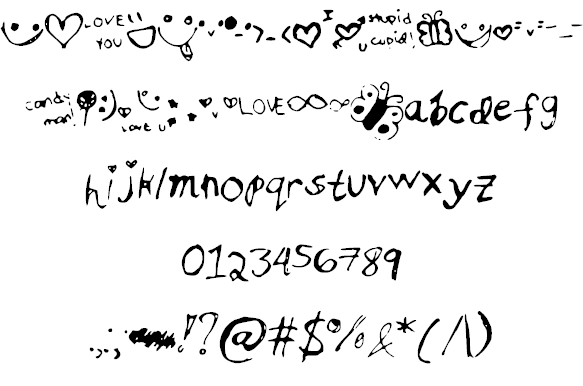 LOVE YOU I stupid u cupid!
candy man! :) Love u LOVE abcdefg
hijklmnopqrstuvwxyz
0123456789
.,:; !?@#$%&*(/\)